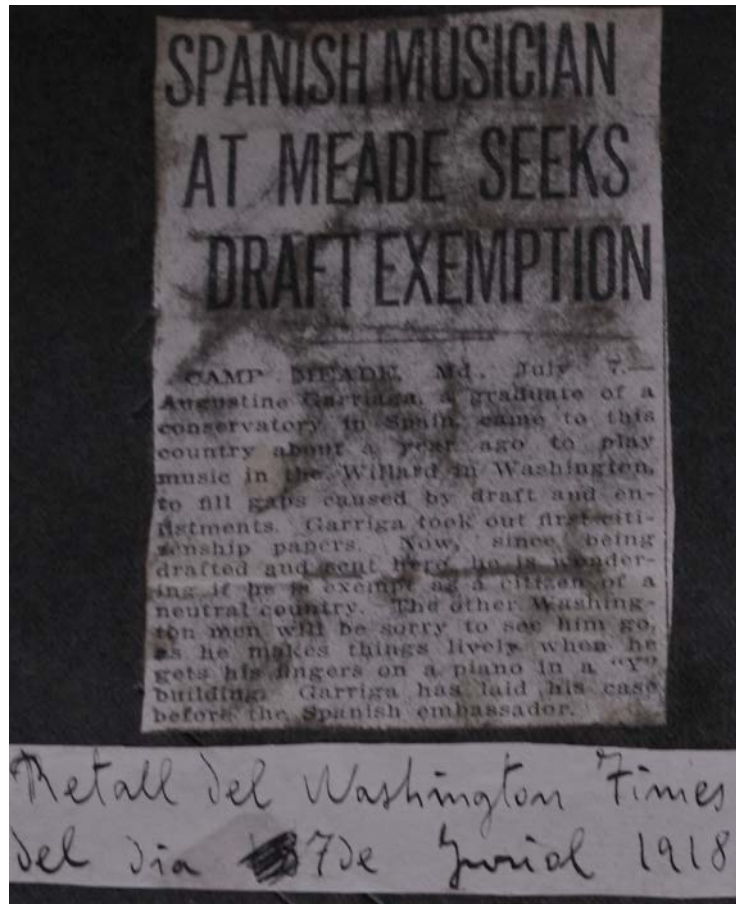 SPANISH MUSICIAN
AT MEADE SEEKS
DRAFT EXEMPTION
CAMP MEADE, Md., July 7.—
Augustine Garriaga, a graduate of a
conservatory in Spain, came to this
country about a year ago to play
music in the Willard in Washington,
to fill gaps caused by draft and en-
listments. Garriga took out first citi-
zenship papers. Now, since being
drafted and sent here, he is wonder-
ing if he is exempt as a citizen of a
neutral country. The other Washing-
ton men will be sorry to see him go,
as he makes things lively when he
gets his fingers on a piano in a "Y"
building. Garriga has laid his case
before the Spanish embassador.
Retall del Washington Times
del dia 7 de 1918